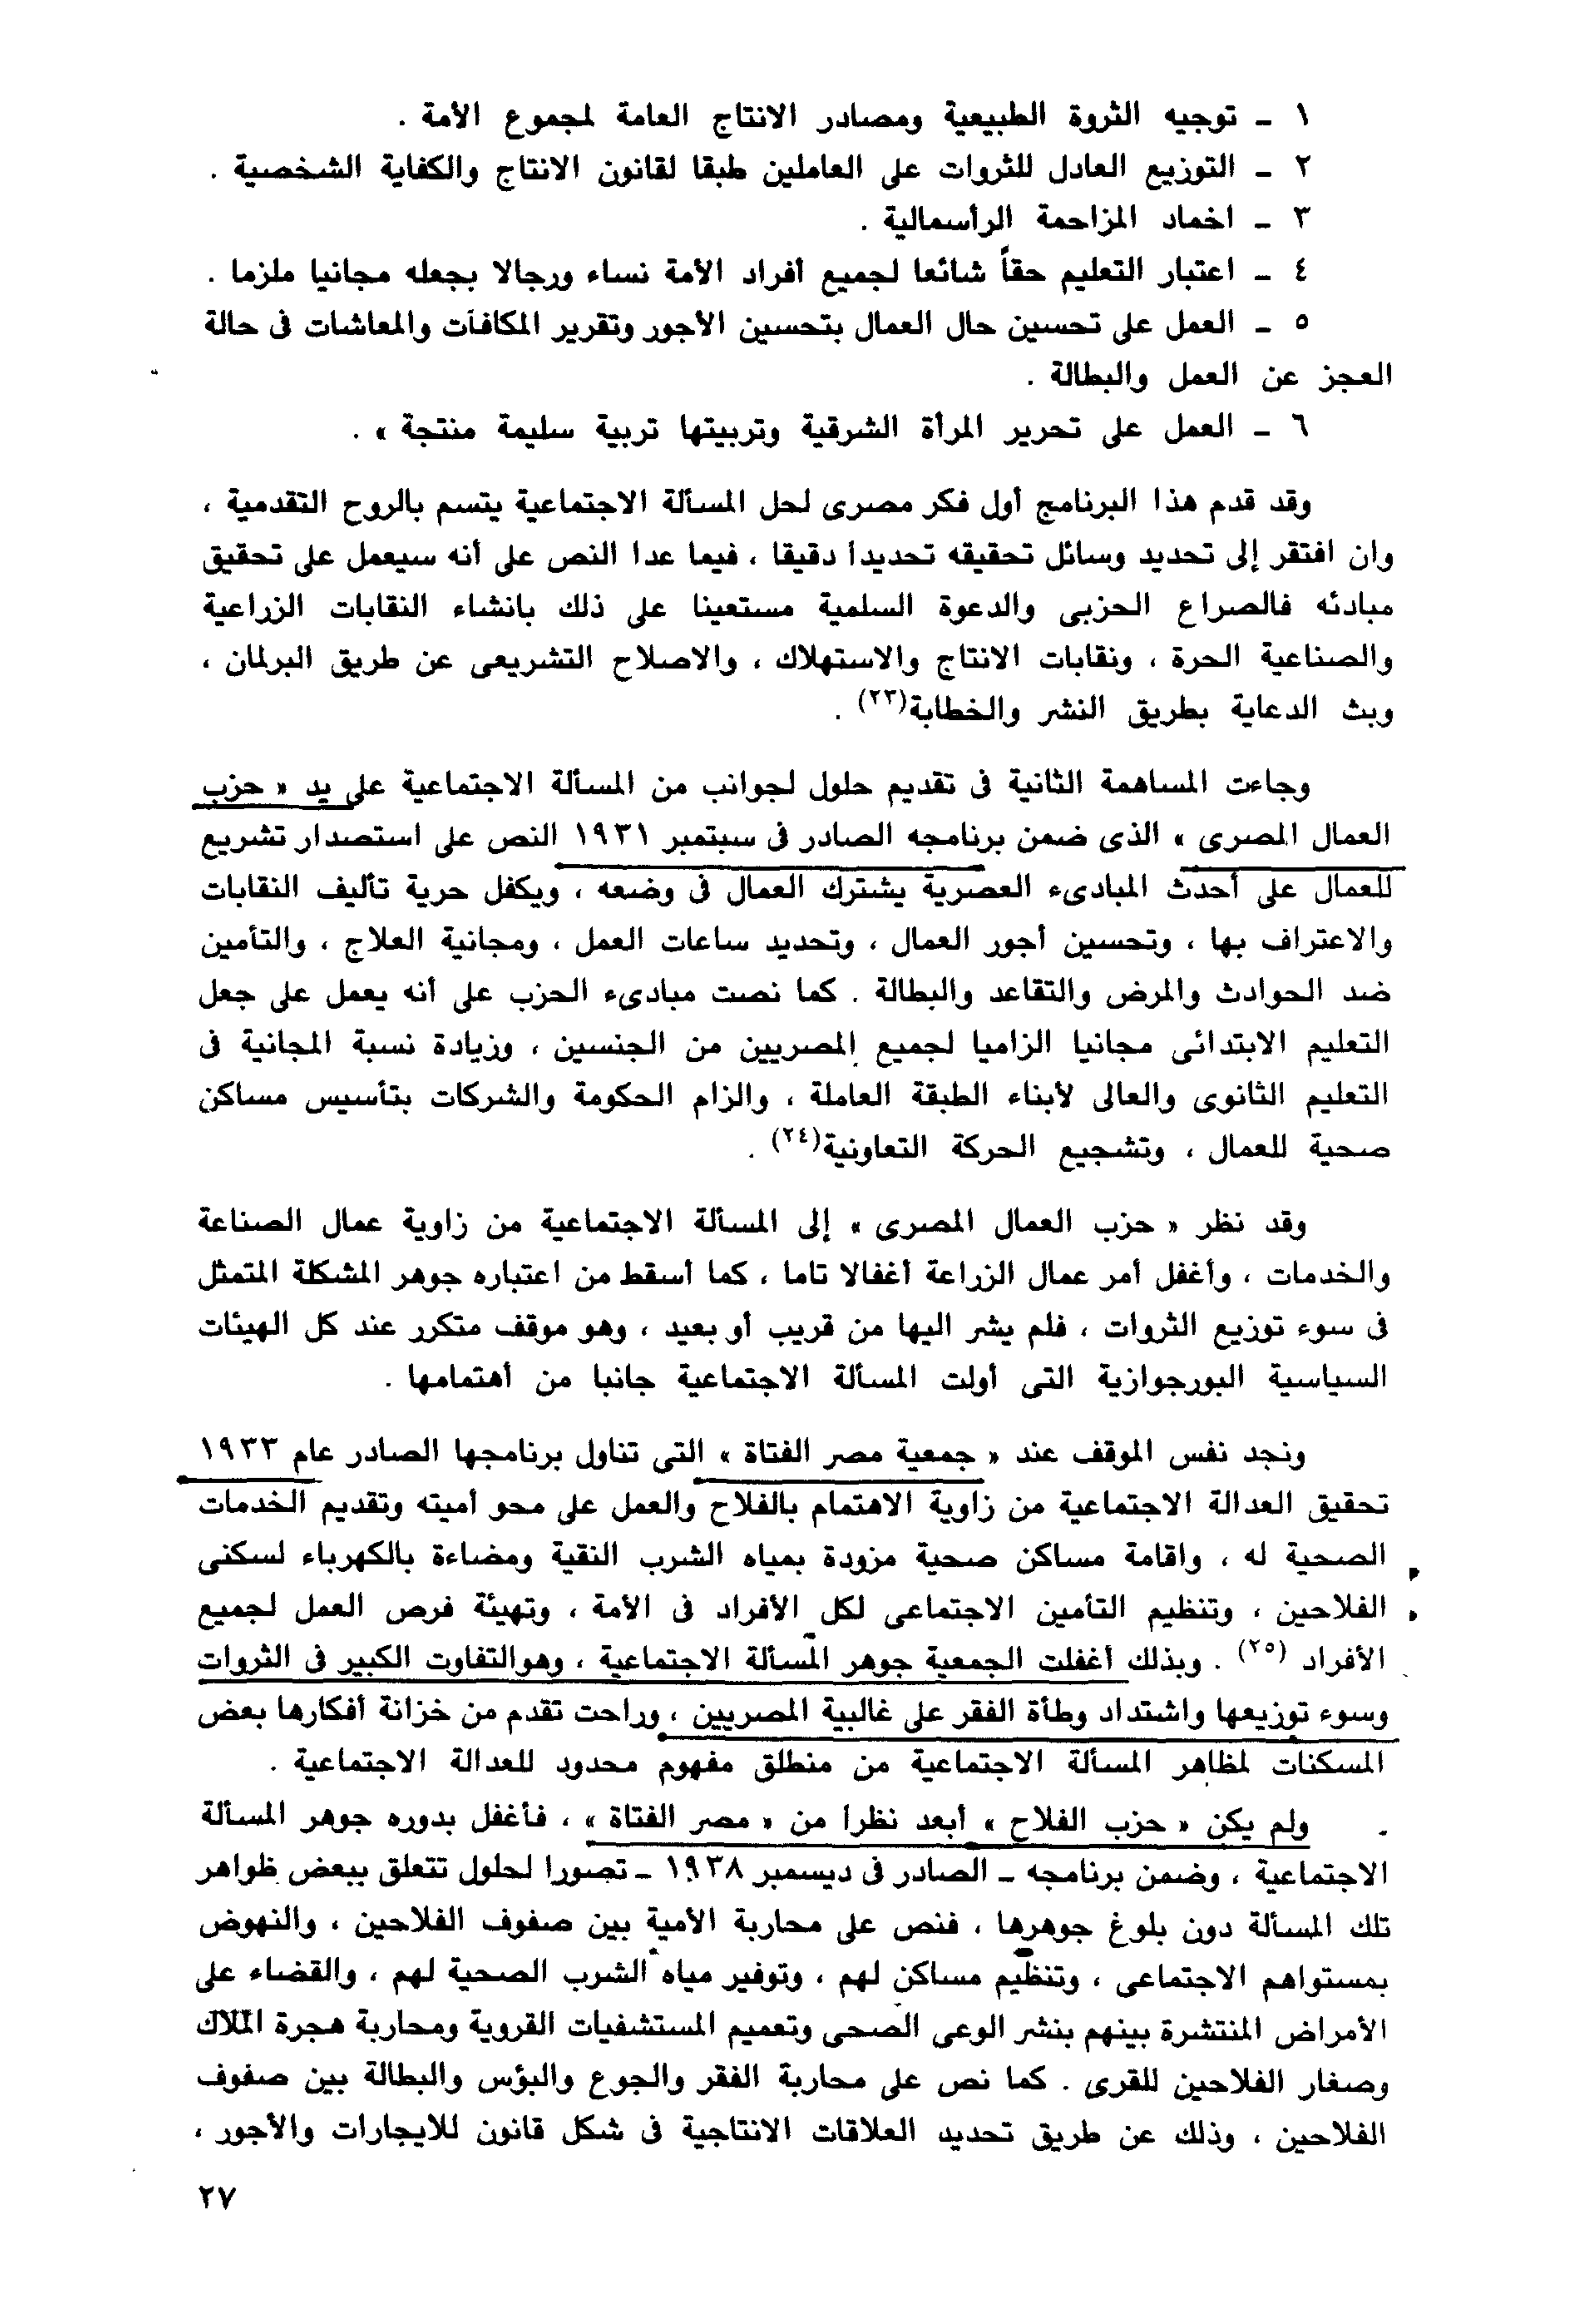 ١ ـ توجيه الثروة الطبيعية ومصادر الانتاج العامة لمجموع الأمة .
٢ ـ التوزيع العادل للثروات على العاملين طبقا لقانون الانتاج والكفاية الشخصية .
٣ ـ اخماد المزاحمة الرأسمالية .
٤ ـ اعتبار التعليم حقاً شائعا لجميع أفراد الأمة نساء ورجالا بجعله مجانيا ملزما .
٥ ـ العمل على تحسين حال العمال بتحسين الأجور وتقرير المكافآت والمعاشات فى حالة
العجز عن العمل والبطالة .
٦ ـ العمل على تحرير المرأة الشرقية وتربيتها تربية سليمة منتجة » .
وقد قدم هذا البرنامج أول فكر مصرى لحل المسألة الاجتماعية يتسم بالروح التقدمية ،
وان افتقر إلى تحديد وسائل تحقيقه تحديداً دقيقا ، فيما عدا النص على أنه سيعمل على تحقيق
مبادئه فالصراع الحزبى والدعوة السلمية مستعينا على ذلك بانشاء النقابات الزراعية
والصناعية الحرة ، ونقابات الانتاج والاستهلاك ، والاصلاح التشريعى عن طريق البرلمان ،
وبث الدعاية بطريق النشر والخطابة(٢٣) .
وجاءت المساهمة الثانية فى تقديم حلول لجوانب من المسألة الاجتماعية على يد « حزب
العمال المصرى » الذى ضمن برنامجه الصادر فى سبتمبر ١٩٣١ النص على استصدار تشريع
للعمال على أحدث المبادىء العصرية يشترك العمال فى وضعه ، ويكفل حرية تأليف النقابات
والاعتراف بها ، وتحسين أجور العمال ، وتحديد ساعات العمل ، ومجانية العلاج ، والتأمين
ضد الحوادث والمرض والتقاعد والبطالة . كما نصت مبادىء الحزب على أنه يعمل على جعل
التعليم الابتدائى مجانيا الزاميا لجميع المصريين من الجنسين ، وزيادة نسبة المجانية فى
التعليم الثانوى والعالى لأبناء الطبقة العاملة ، والزام الحكومة والشركات بتأسيس مساكن
صحية للعمال ، وتشجيع الحركة التعاونية(٢٤) .
وقد نظر « حزب العمال المصرى » إلى المسألة الاجتماعية من زاوية عمال الصناعة
والخدمات ، وأغفل أمر عمال الزراعة أغفالا تاما ، كما أسقط من اعتباره جوهر المشكلة المتمثل
فى سوء توزيع الثروات ، فلم يشر اليها من قريب أو بعيد ، وهو موقف متكرر عند كل الهيئات
السياسية البورجوازية التى أولت المسألة الاجتماعية جانبا من أهتمامها .
ونجد نفس الموقف عند « جمعية مصر الفتاة » التى تناول برنامجها الصادر عام ١٩٣٣
تحقيق العدالة الاجتماعية من زاوية الاهتمام بالفلاح والعمل على محو أميته وتقديم الخدمات
الصحية له ، واقامة مساكن صحية مزودة بمياه الشرب النقية ومضاءة بالكهرباء لسكنى
الفلاحين ، وتنظيم التأمين الاجتماعى لكل الأفراد فى الأمة ، وتهيئة فرص العمل لجميع
الأفراد (٢٥) . وبذلك أغفلت الجمعية جوهر المسألة الاجتماعية ، وهوالتفاوت الكبير فى الثروات
وسوء توزيعها واشتداد وطأة الفقر على غالبية المصريين ، وراحت تقدم من خزانة أفكارها بعض
المسكنات لمظاهر المسألة الاجتماعية من منطلق مفهوم محدود للعدالة الاجتماعية .
ولم يكن « حزب الفلاح » أبعد نظراً من « مصر الفتاة » ، فأغفل بدوره جوهر المسألة
الاجتماعية ، وضمن برنامجه ـ الصادر فى ديسمبر ١٩٣٨ ـ تصورا لحلول تتعلق ببعض ظواهر
تلك المسألة دون بلوغ جوهرها ، فنص على محاربة الأمية بين صفوف الفلاحين ، والنهوض
بمستواهم الاجتماعى ، وتنظيم مساكن لهم ، وتوفير مياه الشرب الصحية لهم ، والقضاء على
الأمراض المنتشرة بينهم بنشر الوعى الصحى وتعميم المستشفيات القروية ومحاربة هجرة الملاك
وصغار الفلاحين للقرى . كما نص على محاربة الفقر والجوع والبؤس والبطالة بين صفوف
الفلاحين ، وذلك عن طريق تحديد العلاقات الانتاجية فى شكل قانون للايجارات والأجور ،
٢٧